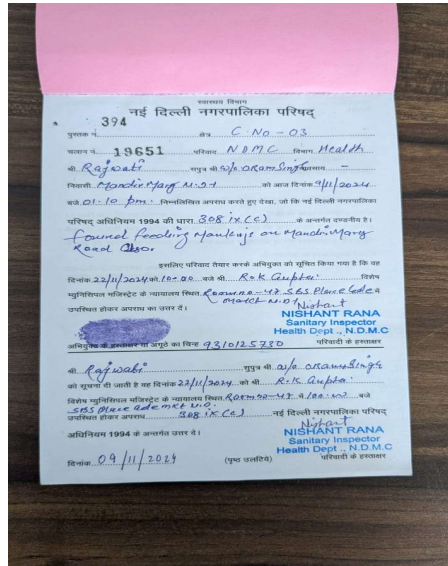 स्वास्थ्य विभाग
नई दिल्ली नगरपालिका परिषद्
पुस्तक नं. 394 क्षेत्र C. No - 03
चलान नं. 19651 परिवाद NDMC विभाग Health
श्री Rajwati सुपुत्र श्री w/o
निवासी Mandir Marg N.D-1 को आज दिनांक 9/11/2024
बजे 01.10 pm. निम्नलिखित अपराध करते हुए देखा, जो कि नई दिल्ली नगरपालिका
परिषद् अधिनियम 1994 की धारा 308 ix (c) के अन्तर्गत दण्डनीय है।
found feeding Monkeys on Mandir Marg
Road
इसलिए परिवाद तैयार करके अभियुक्त को सूचित किया गया है कि वह
दिनांक 22/11/2024 को 10:00 बजे श्री R.K Gupta विशेष
म्युनिसिपल मजिस्ट्रेट के न्यायालय स्थित Room no-47 SBS Place Gole में
उपस्थित होकर अपराध का उत्तर दें। Market N.D1
Nishant
NISHANT RANA
Sanitary Inspector
Health Dept., N.D.M.C
अभियुक्त के हस्ताक्षर या अंगूठे का चिन्ह 9310125730 परिवादी के हस्ताक्षर
श्री Rajwati सुपुत्र श्री w/o
को सूचना दी जाती है वह दिनांक 22/11/2024 को श्री R.K Gupta
विशेष म्युनिसिपल मजिस्ट्रेट के न्यायालय स्थित Room no-47 में बजे
SBS Place
उपस्थित होकर अपराध 308 ix (c) नई दिल्ली नगरपालिका परिषद्
अधिनियम 1994 के अन्तर्गत उत्तर दें।
Nishant
NISHANT RANA
Sanitary Inspector
Health Dept., N.D.M.C
दिनांक 09/11/2024 (पृष्ठ उलटिये) परिवादी के हस्ताक्षर